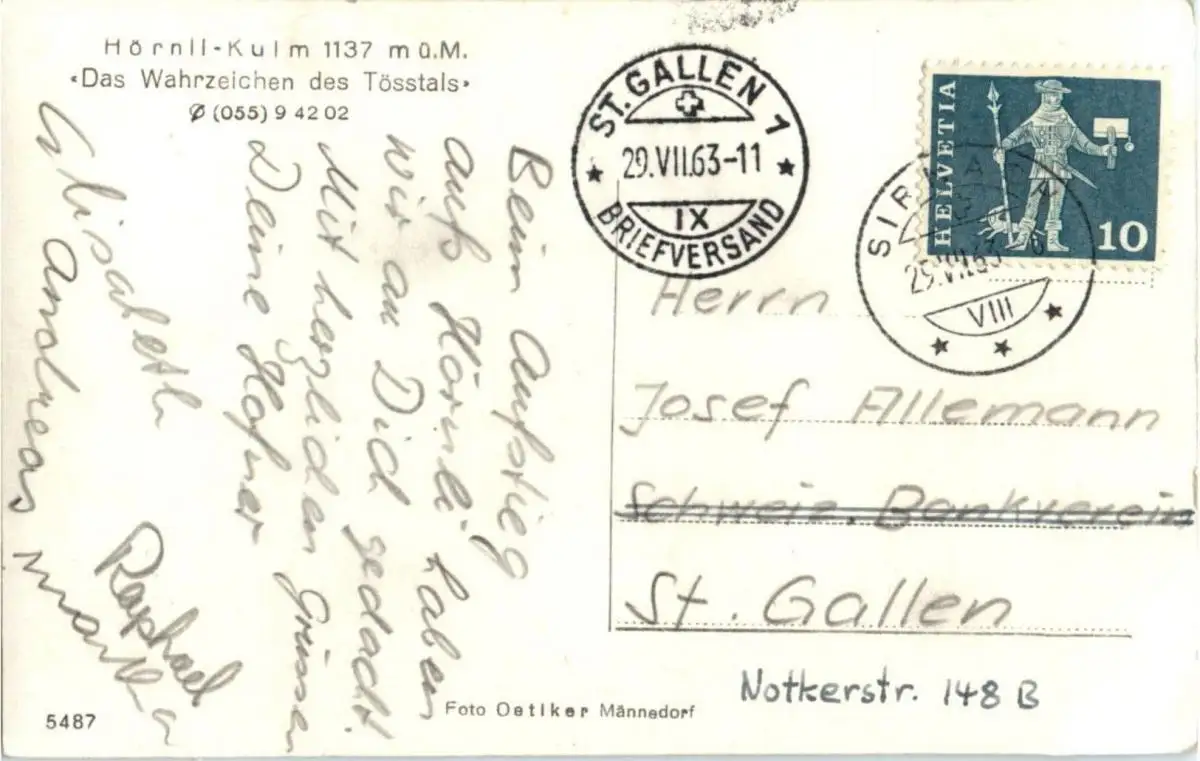 Hörnli-Kulm 1137 m ü.M.
«Das Wahrzeichen des Tösstals»
(055) 9 42 02
Beim Aufstieg
aufs Hörnli haben
wir an Dich gedacht.
Mit herzlichen Grüssen
Deine Hafner
Elisabeth
Andreas
Raphael
Martha
5487
Foto Oetiker Männedorf
ST. GALLEN 1
29.VII.63-11
IX
BRIEFVERSAND
HELVETIA
10
29.VII.63
VIII
Herrn
Josef Allemann
Schweiz. Bankverein
St. Gallen
Notkerstr. 148 B